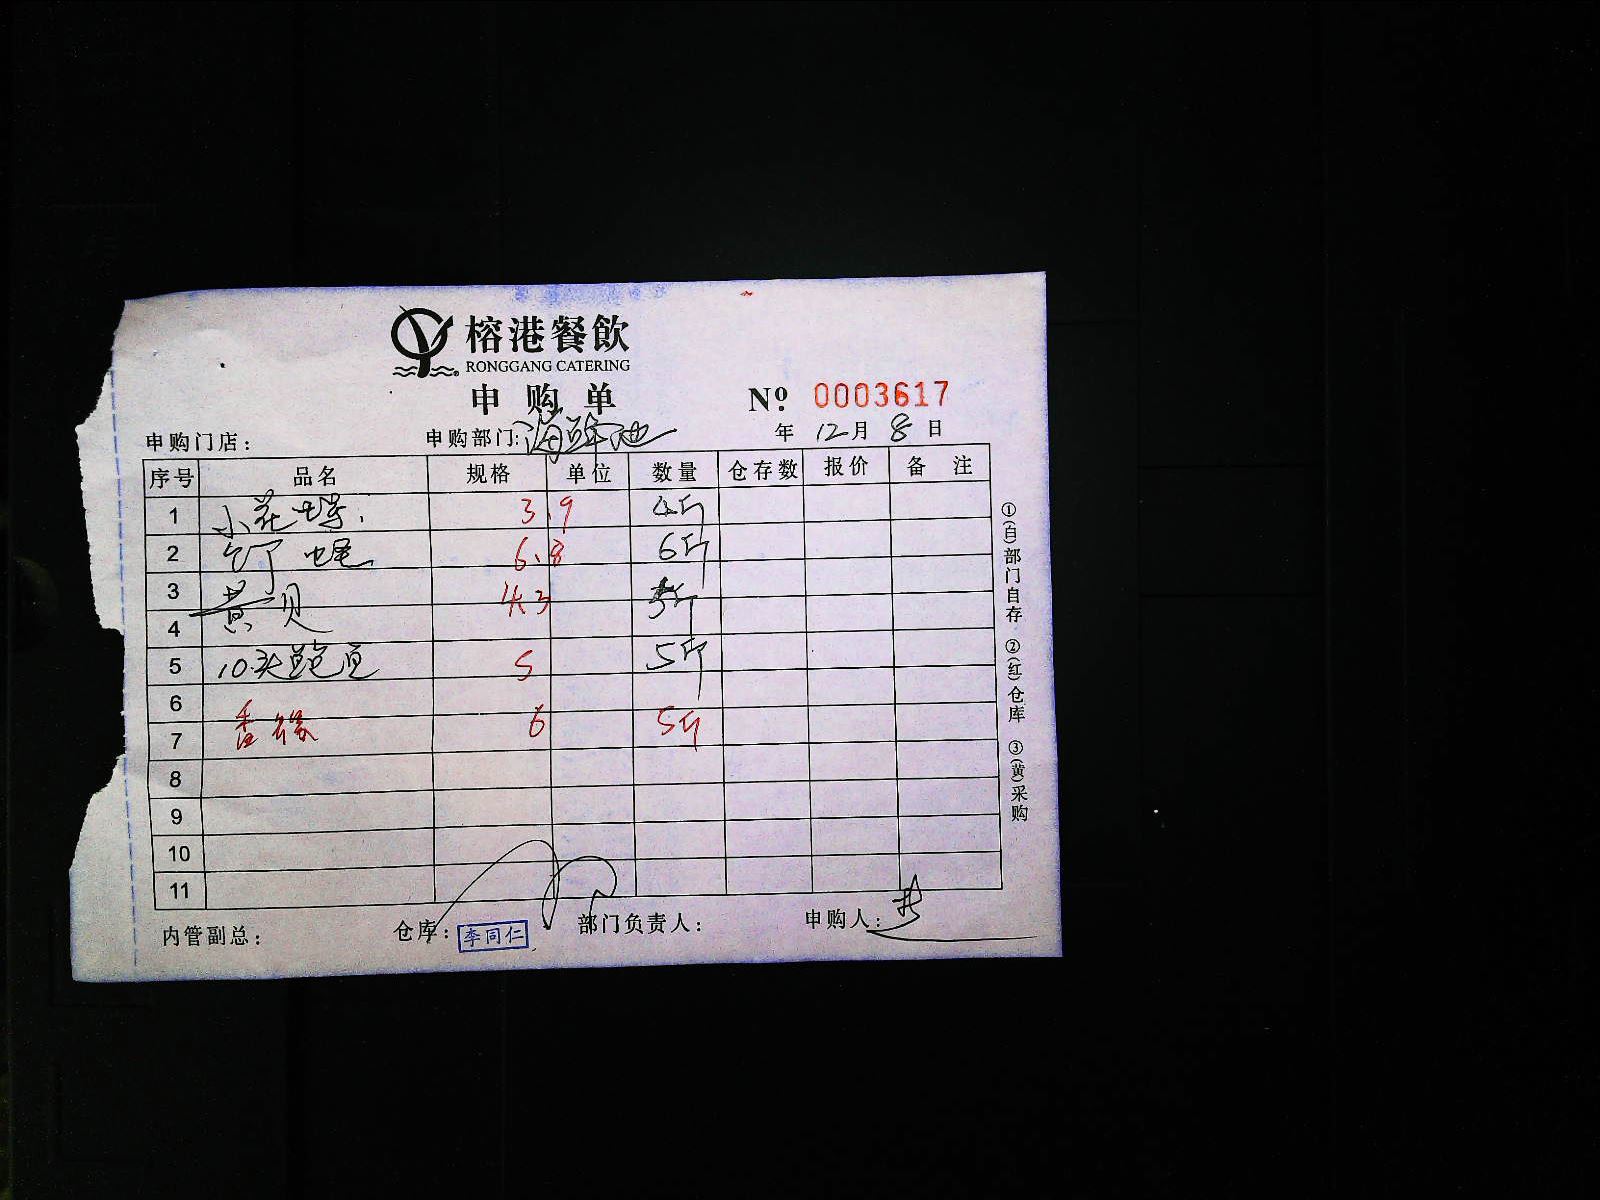 榕港餐飲
RONGGANG CATERING
申购单
Nº: 0003617
申购门店: 申购部门: 海鲜池 年 12月 8日
序号 品名 规格 单位 数量 仓存数 报价 备注
1 小花螺 3.9 4斤
2 钉螺 6.8 6斤
3 黄贝 4.3
4
5 10头鲍鱼 5 5斤
6
7 香螺 6 5斤
8
9
10
11
①(白)部门自存 ②(红)仓库 ③(黄)采购
内管副总: 仓库: 李同仁 部门负责人: 申购人: